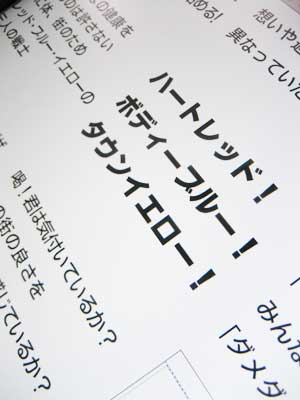 想いや
異なっていた
める！
の健康を
のは許さない
体、街のため
レッド・ブルー・イエローの
人の戦士
ハートレッド！
ボディーブルー！
タウンイエロー！
喝！君は気付いているか？
の街の良さを
じているか？
「
みんな
「ダメダ